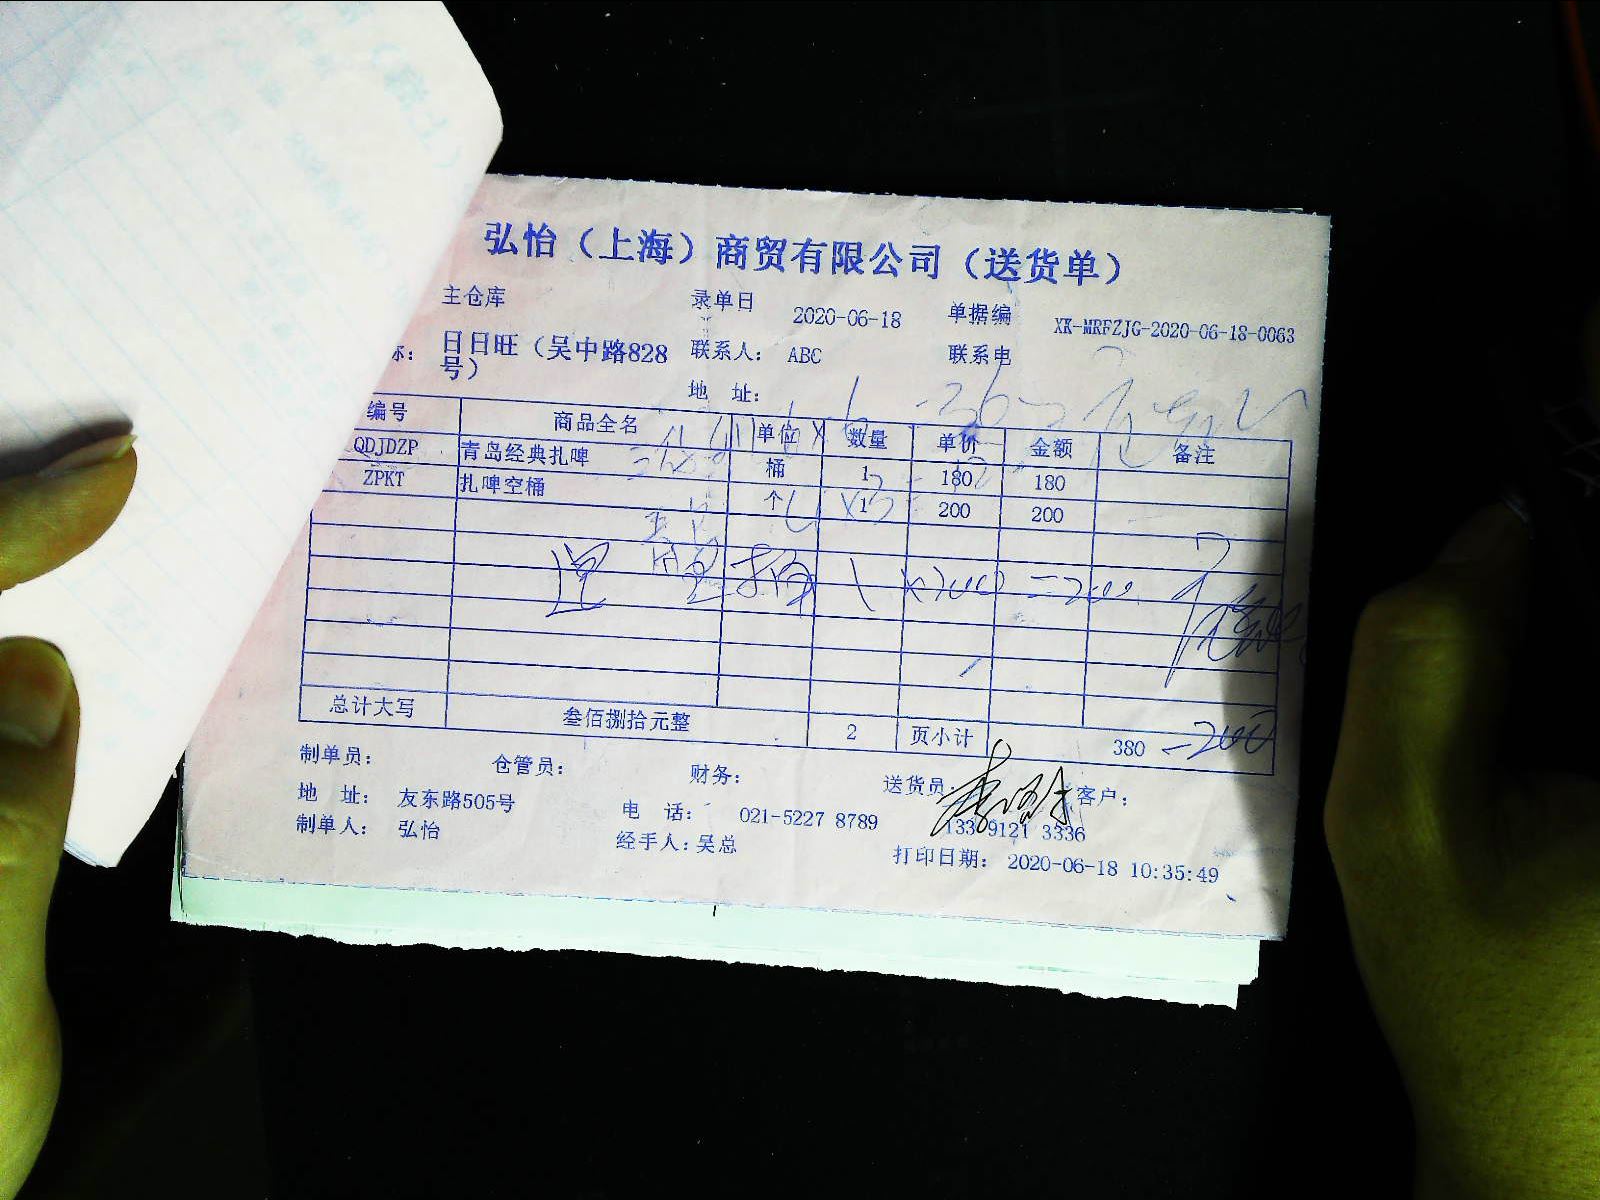 弘怡（上海）商贸有限公司（送货单）
主仓库 录单日 2020-06-18 单据编 XK-MRFZJG-2020-06-18-0063
称： 日日旺（吴中路828号） 联系人： ABC 联系电
地 址：
编号 商品全名 单位 数量 单价 金额 备注
QDJDZP 青岛经典扎啤 桶 1 180 180
ZPKT 扎啤空桶 个 1 200 200
1 x200 =200
总计大写 叁佰捌拾元整 2 页小计 380 -200
制单员： 仓管员： 财务： 送货员： 客户：
地 址： 友东路505号 电 话： 021-5227 8789 133 9121 3336
制单人： 弘怡 经手人：吴总 打印日期： 2020-06-18 10:35:49